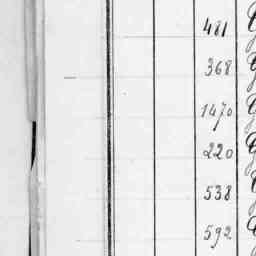 481
368
1470
220
538
592